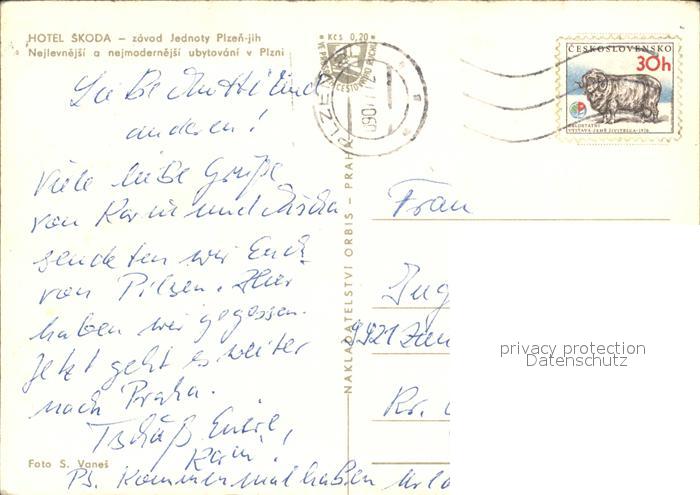 HOTEL ŠKODA – závod Jednoty Plzeň-jih
Nejlevnější a nejmodernější ubytování v Plzni
Liebe Mutti und
anderen!
Viele liebe Grüße
von Karin und Mischa
senden wir Euch
von Pilsen. Hier
haben wir gegessen.
Jetzt geht es weiter
nach Praha.
Tschüß Eure
Karin!
Ps. Kommen mal haben
Foto S. Vaneš
NAKLADATELSTVÍ ORBIS – PRAHA
Kčs 0,20
PLZEŇ
ČESKOSLOVENSKO
30h
CELOSTÁTNÍ
VÝSTAVA ZEMĚ ŽIVITELKA-1976
Frau
Ing
9921
Kr.
privacy protection
Datenschutz